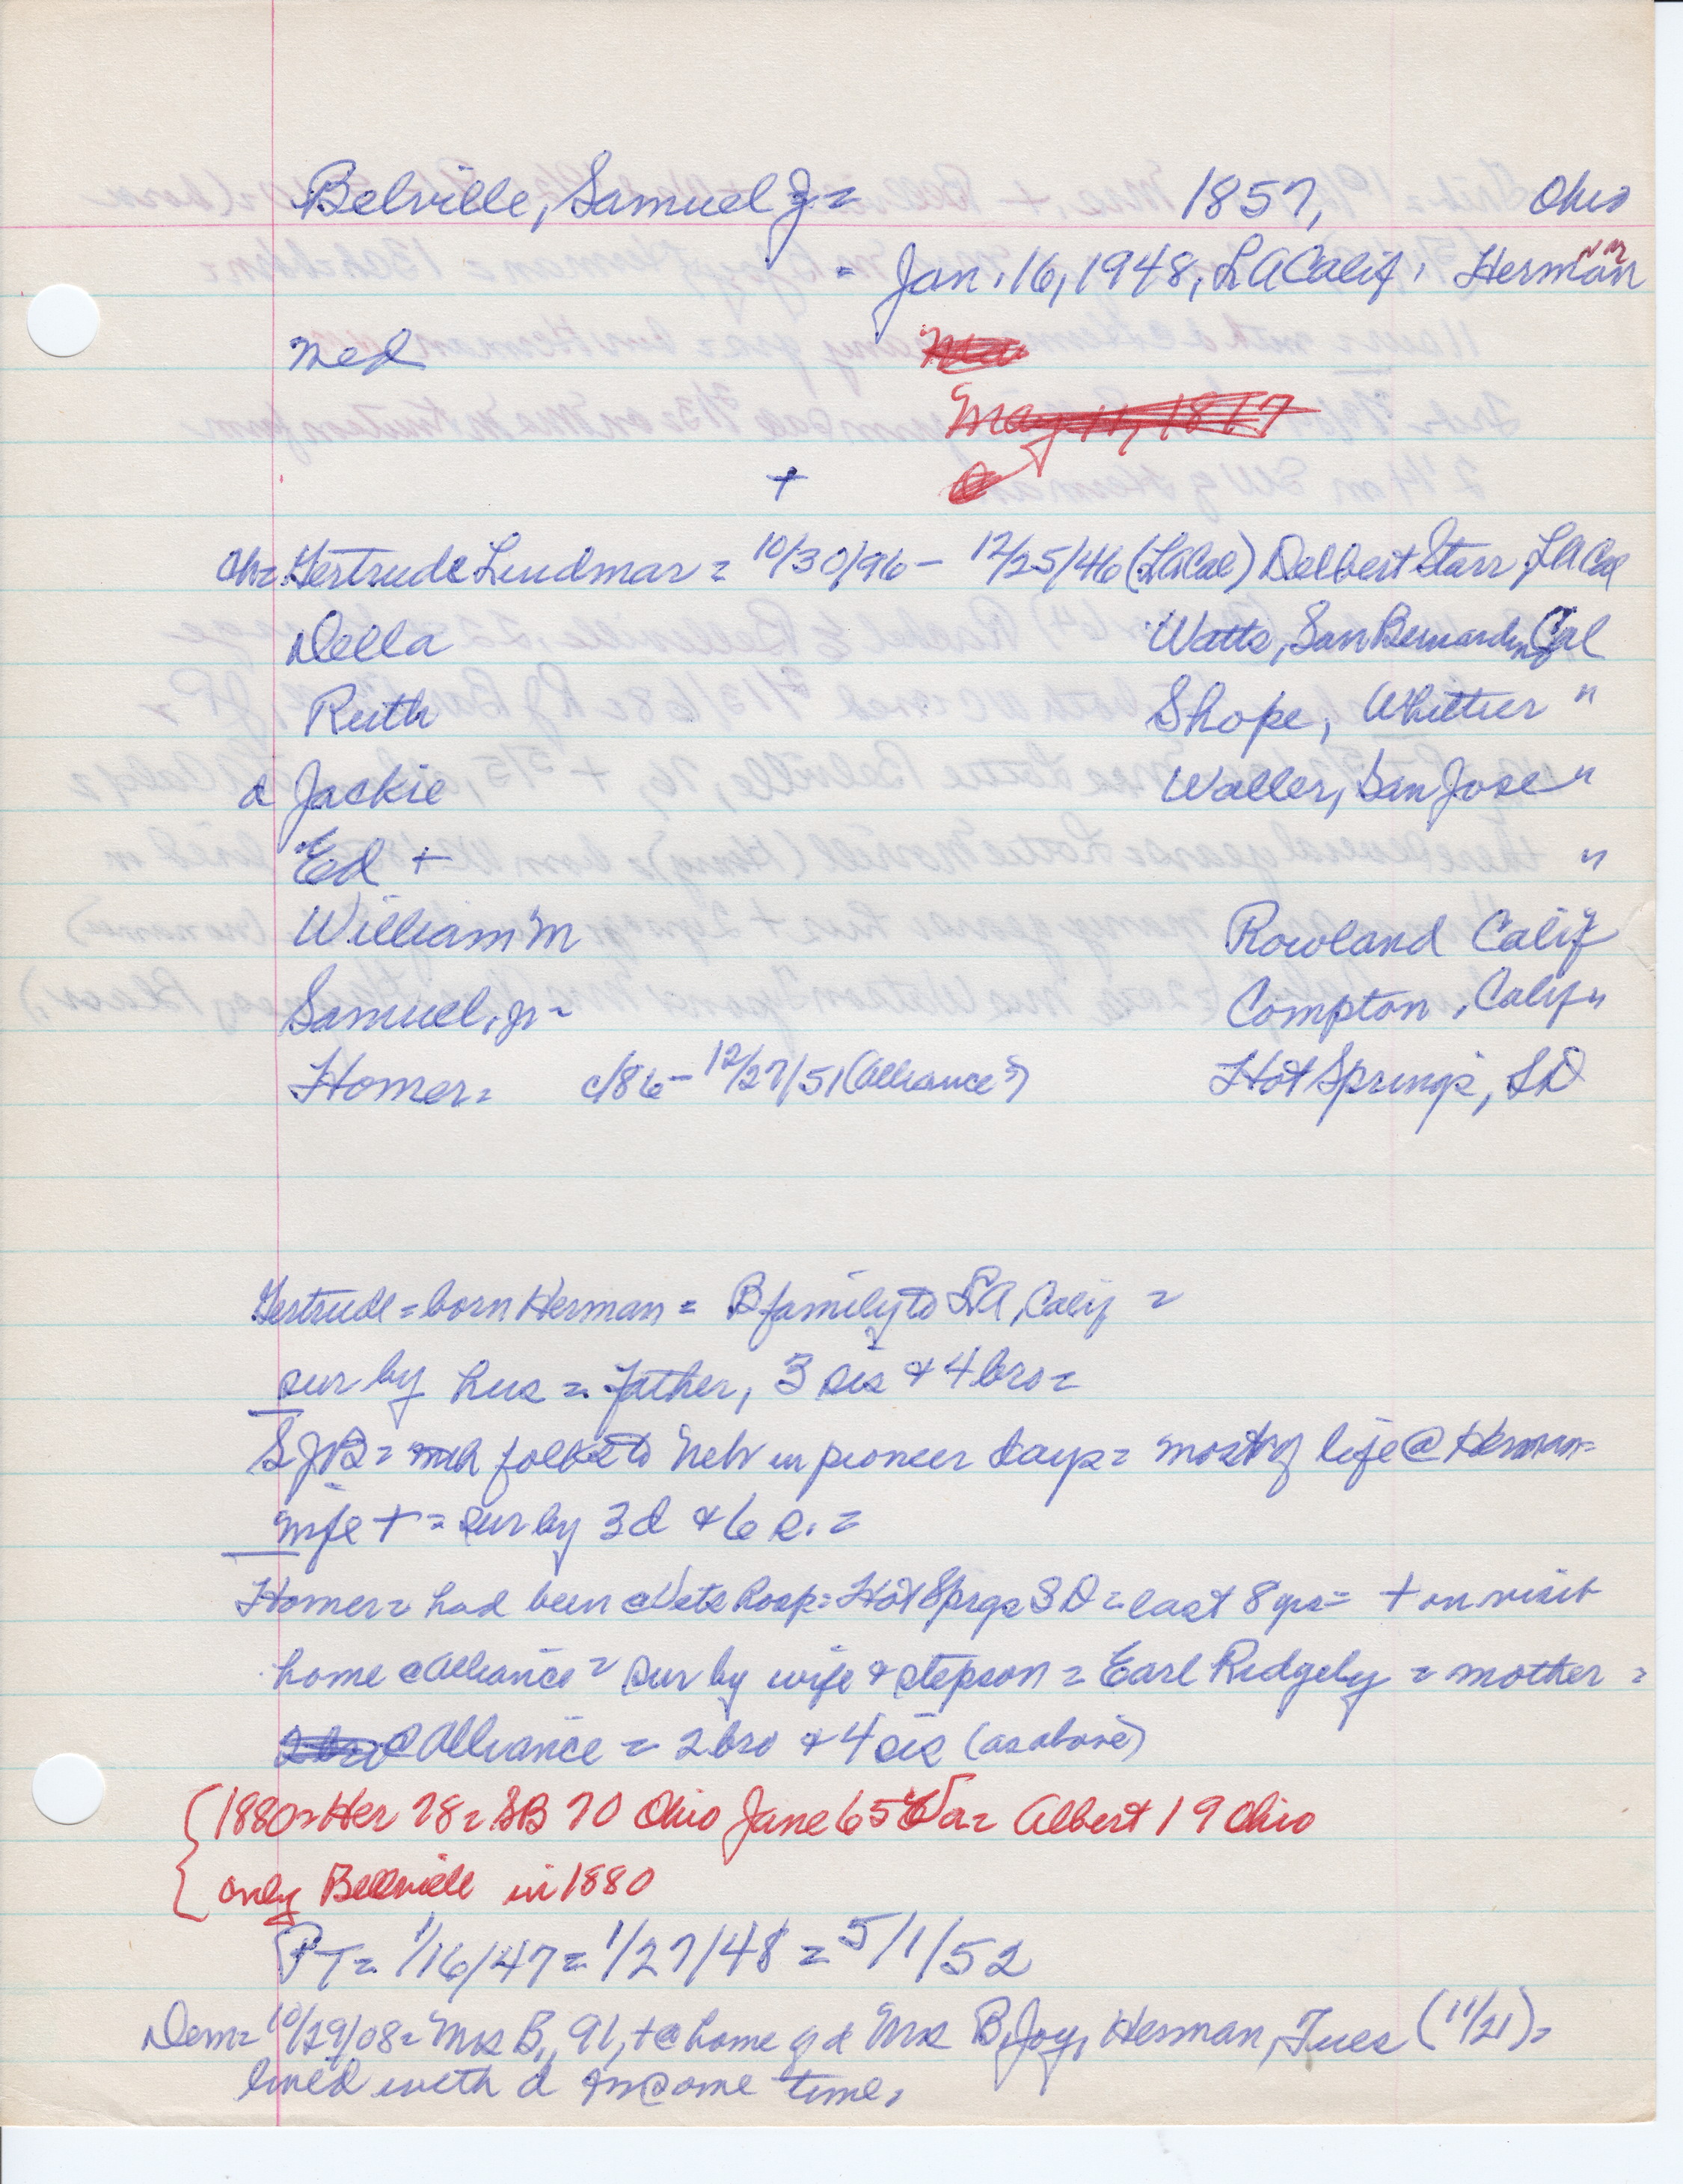 Belville, Samuel J = 1857, Ohio
= Jan. 16, 1948, LA Calif, Herman
med
May 11, 1817
+
ch = Gertrude = 10/30/96 - 12/25/46 (LA Cal) Delbert Starr, LA Cal
Della Watts, San Bernardino Cal
Ruth Shope, Whittier "
d Jackie Waller, San Jose "
Ed + "
William M Rowland Calif
Samuel, Jr = Compton, Calif "
Homer = c/86 - 12/27/51 (Alliance) Hot Springs, SD
Gertrude = born Herman = B family to LA, Calif =
sur by hus = father, 3 sis & 4 bro =
SJB = folks to Neb in pioneer days = most of life @ Herman =
wife + = sur by 3 d & 6 s. =
Homer = had been @ Vets Hosp = Hot Sprgs SD = last 8 yrs = + on visit
home @ Alliance = sur by wife & stepson = Earl Ridgeby = mother =
@ Alliance = 2 bro & 4 sis (as above)
1880 = Her 28 = SB 70 Ohio Jane 65 Va = Albert 19 Ohio
only Bellville in 1880
PT = 1/16/47 = 1/27/48 = 5/1/52
Dem = 10/29/08 = Mrs B, 91, + @ home of d Mrs B, Joy, Herman, Tues (11/21) =
lived with d some time,